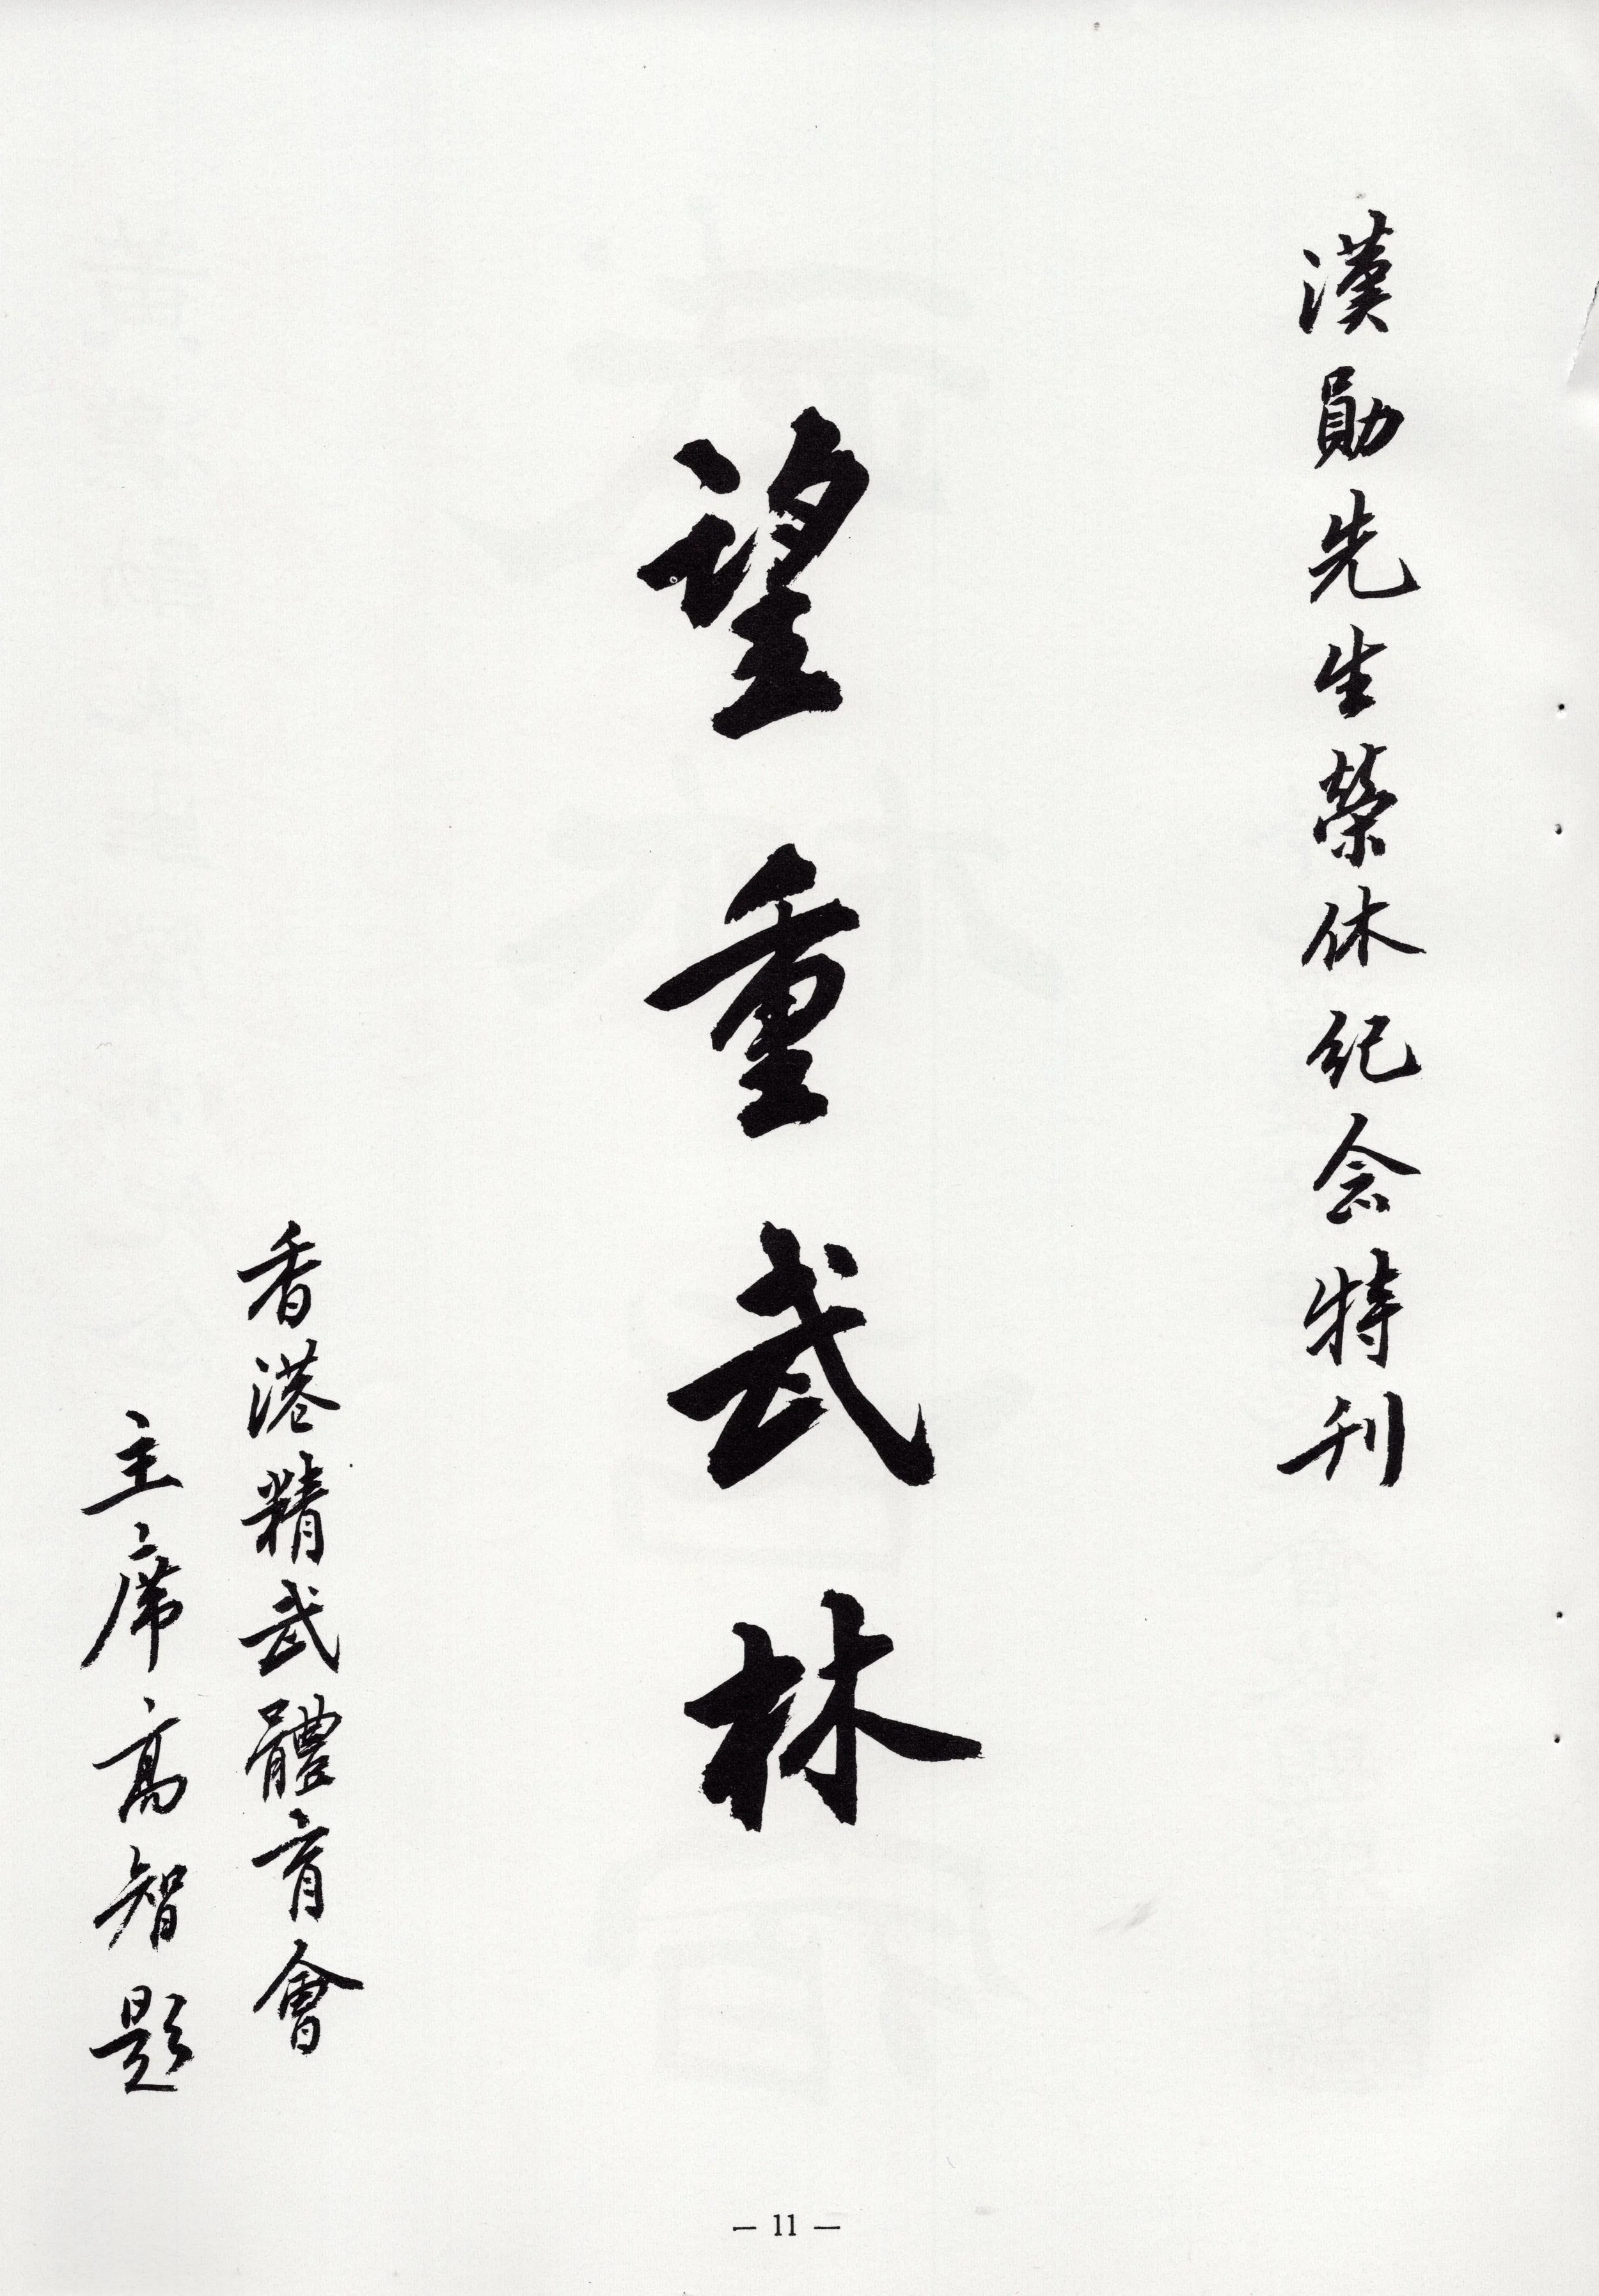 漢勛先生榮休紀念特刊
望重武林
香港精武體育會
主席高智題
— 11 —